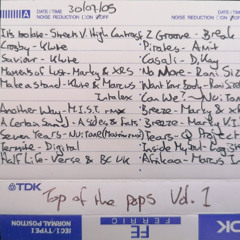 A
30/07/05
NOISE REDUCTION ON OFF NOISE REDUCTION ON OFF
Its too late - Streets V High Contrast Z Groove - Break
Crosby - Klute Pirates - Amit
Saviour - Klute Casali - D.Kay
Moments of Lust - Marky & XRS No More - Roni Size
Make a stand - Klute & Marcus Want Your Body - Roni Size
Intalex Can We? - Nu:Tone
Another Way - M.I.S.T. Breeze - Marky &
A Certain Sound - A Sides & Breeze - Marky
Seven Years - Nu:Tone Tears - Q Project
Termite - Digital Inside My
Half Life - Verse & BC UK Afrikaa - Marcus
TDK Top of the pops Vol. 1
IEC I / TYPE I
NORMAL POSITION
FE
FERRIC
TDK